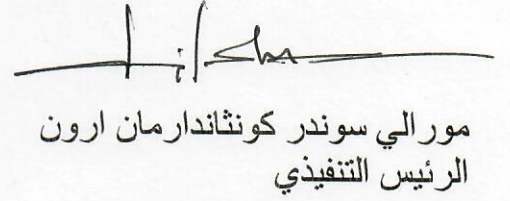 مورالي سوندر كونثاندارمان ارون
الرئيس التنفيذي